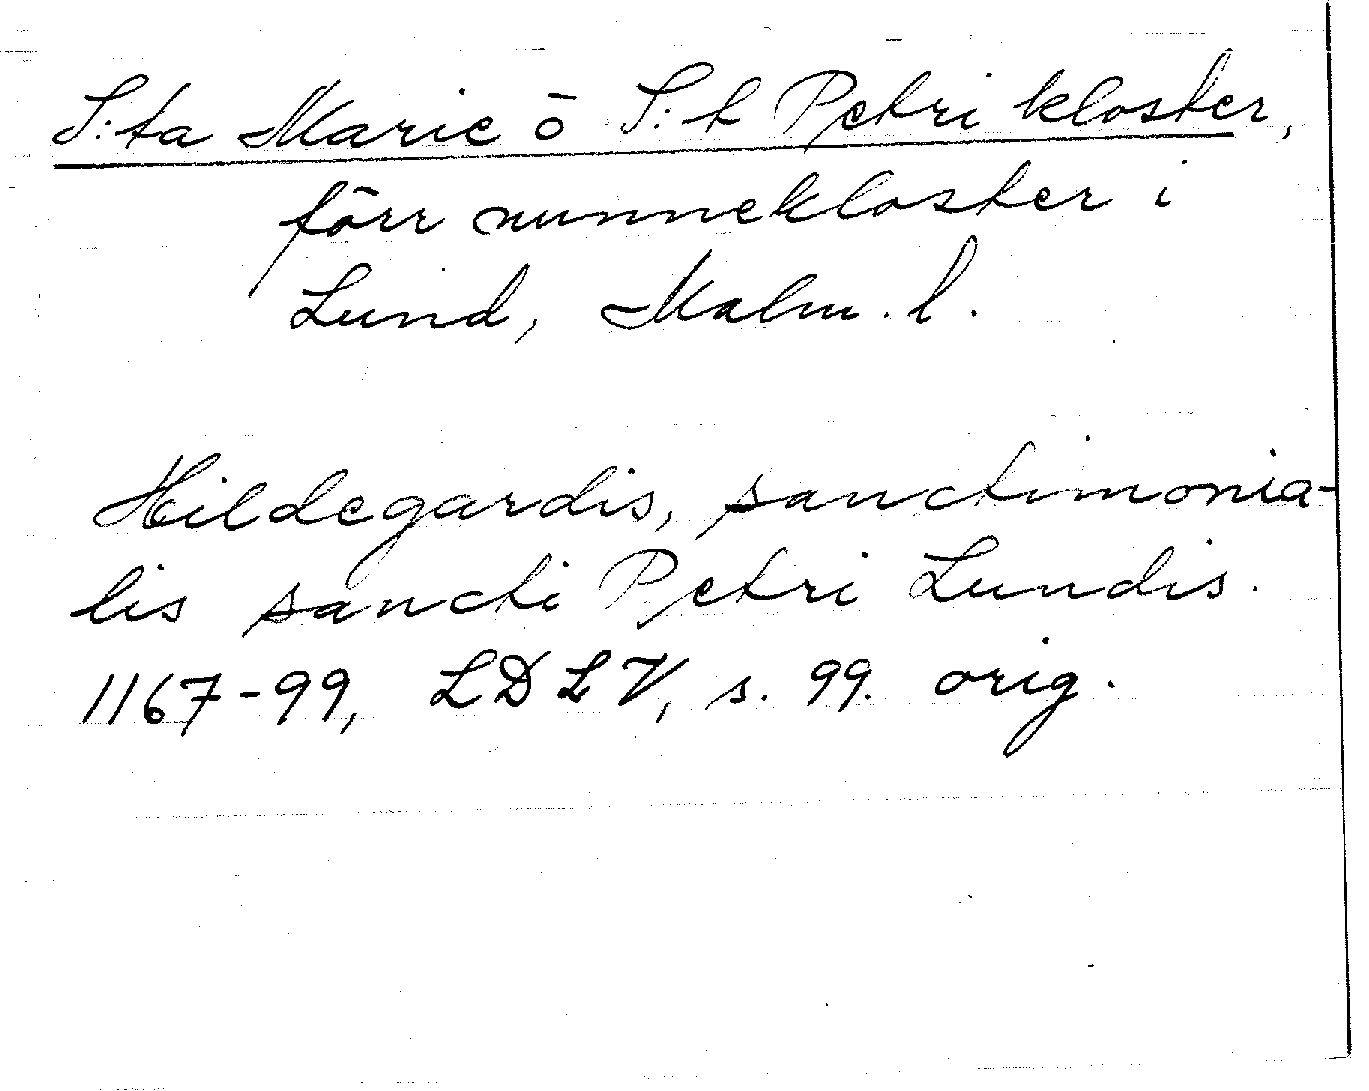 S:ta Marie o S:t Petri kloster,
förr nunnekloster i
Lund, Malm. l.
Hildegardis, sanctimonia-
lis sancti Petri Lundis.
1167-99, LDLV, s. 99. orig.